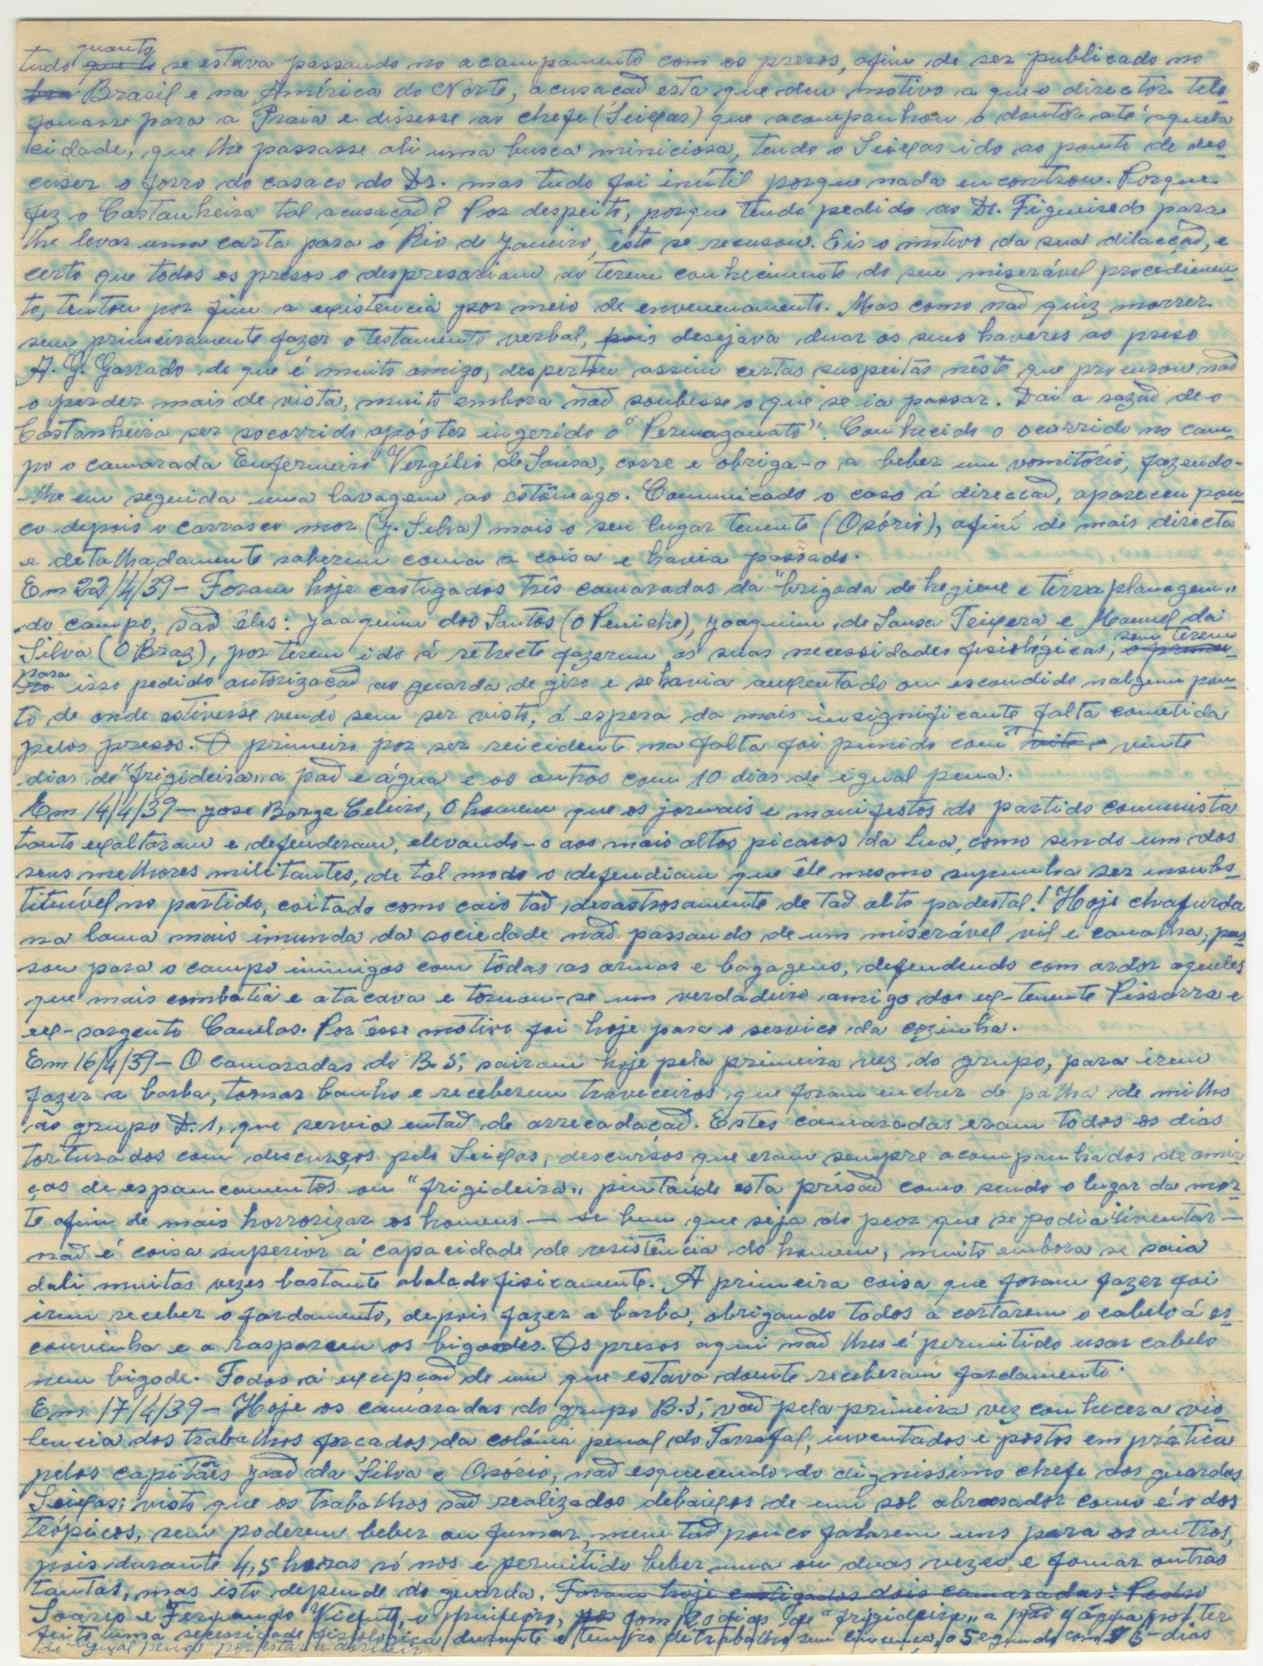 tudo quanto se estava passando no acampamento com os presos, afim de ser publicado no
Brasil e na América do Norte, acusacaõ esta que deu motivo a que o director tele
fonasse para a Praia e dissesse ao chefe (Seixas) que acompanhou o doutor até aquela
cidade, que lhe passasse ali uma busca miniciosa, tendo o Seixas ido ao ponto de des
coser o forro do casaco do Dr. mas tudo foi inutil porque nada encontrou. Porque
fez o Castanheira tal acusaçaõ? Por despeito, porque tendo pedido ao Dr. Figueiredo para
lhe levar uma carta para o Rio de Janeiro, êste se recusou. Eis o motivo da sua dilacçaõ, e
certo que todos os presos o despresariam ao terem conhecimento do seu miserável procedimen-
to, tentou por fim a existencia por meio de envenenamento. Mas como naõ quiz morrer
sem primeiramente fazer o testamento verbal, pois desejava doar os seus haveres ao preso
A. G. Garrado de que é muito amigo, despertou assim certas suspeitas nêste que procurou naõ
o perder mais de vista, muito embora naõ soubesse o que se ia passar. Dai a razaõ de o
Castanheira ser socorrido após ter ingerido o "Permaganato". Conhecido o ocorrido no cam-
po o camarada Enfermeiro Vergílio de Sousa, corre e obriga-o a beber um vomitório, fazendo-
-lhe em seguida uma lavagem ao estômago. Comunicado o caso á direcçaõ, apareceu pou-
co depois o carrasco mor (J. Silva) mais o seu lugar tenente (Osório), afim de mais directa
e detalhadamente saberem como a coisa e havia passado.
Em 22/4/39 - Foram hoje castigados três camaradas da "brigada de hegiene e terraplanagem"
do campo, saõ êles: Joaquim dos Santos (O Peniche), Joaquim de Sousa Teixera e Manuel da
Silva (O Braz), por terem ido á retrecte fazerem as suas necessidades fisiológicas, sem terem
para isso pedido autorizaçaõ ao guarda de giro e se havia auxentado ou escondido nalgum pon-
to de onde estivesse vendo sem ser visto, á espera da mais insignificante falta cometida
pelos presos. O primeiro por ser reicidente na falta foi punido com vinte
dias de "frigideira" a paõ e água e os outros com 10 dias de igual pena.
Em 14/4/39 - Jose Borge Celeiro, O homem que os jornais e manifestos do partido comunista
tanto exaltaram e defenderam, elevando-o aos mais altos picaros da lua, como sendo um dos
seus melhores militantes, de tal modo o defendiam que êle mesmo supunha ser insubs-
tituivel no partido, coitado como caio taõ desastrosamente de taõ alto padestal! Hoje chafurda
na lama mais imunda da sociedade naõ passando de um miserável vil e canalha, pas
sou para o campo inimigos com tôdas as armas e bagagens, defendendo com ardor aqueles
que mais combatia e atacava e tornou-se um verdadeiro amigo dos ex-tenente Pissarra e
ex-sargento Canelas. Por êsse motivo foi hoje para o serviço da cozinha.
Em 16/4/39 - O camaradas do B. 5, sairam hoje pela primeira vez do grupo, para irem
fazer a barba, tomar banho e receberem traveceiros que foram encher de palha de milho
ao grupo D. 1, que servia entaõ de arrecadaçaõ. Estes camaradas eram todos os dias
torturados com descursos pelo Seixas, descursos que eram sempre acompanhados de amia
ças de espancamentos ou "frigideira" pintando esta prisaõ como sendo o lugar da mor-
te afim de mais horrorizar os homens — se bem que seja do peor que se podia inventar —
naõ é coisa superior á capacidade de resistência do homem, muito embora se saia
dali muitas vezes bastante abalado fisicamente. A primeira coisa que foram fazer foi
irem receber o fardamento, depois fazer a barba, obrigando todos a cortarem o cabelo á es-
covinha e a rasparem os bigodes. Os presos aqui naõ lhes é permitido usar cabelo
nem bigode. Todos á excepçaõ de um que estava doente receberam fardamento.
Em 17/4/39 - Hoje os camaradas do grupo B. 5, vaõ pela primeira vez conhecera vio
lencia dos trabalhos forcados da colónia penal do Tarrafal, inventados e postos em prática
pelos capitães Joaõ da Silva e Osório, naõ esquecendo do digníssimo chefe dos guardas
Seixas; visto que os trabalhos saõ realizados debaixos de um sol abrasador como é o dos
trópicos, sem poderem beber ou fumar, nem taõ pouco falarem uns para os outros,
pois durante 4,5 horas só nos é permitido beber uma ou duas vezes e fumar outras
tantas, mas isto depende do guarda. Foram hoje castigados dois camaradas: Pedro
Soares e Fernando Vicente, o primeiro, com 20 dias de "frigideira" a paõ e água por ter
feito uma necessidade fisiológica durante o tempo de trabalho sem licença, o segundo com 6 dias
de igual pena por estar a